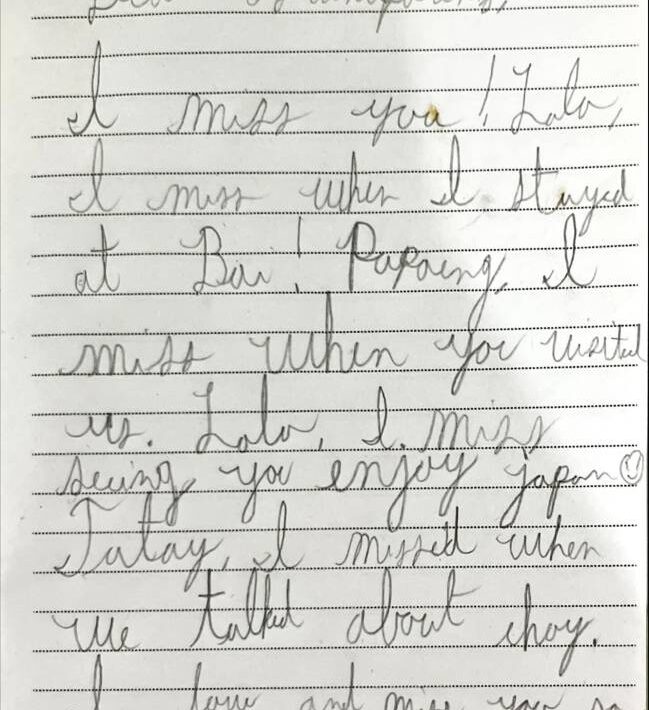 I miss you! Lola,
I miss when I stayed
at Bai! Papaing, I
miss when you visited
us. Lola, I miss
seeing you enjoy japan
Tatay, I missed when
we talked about
I love and miss you so